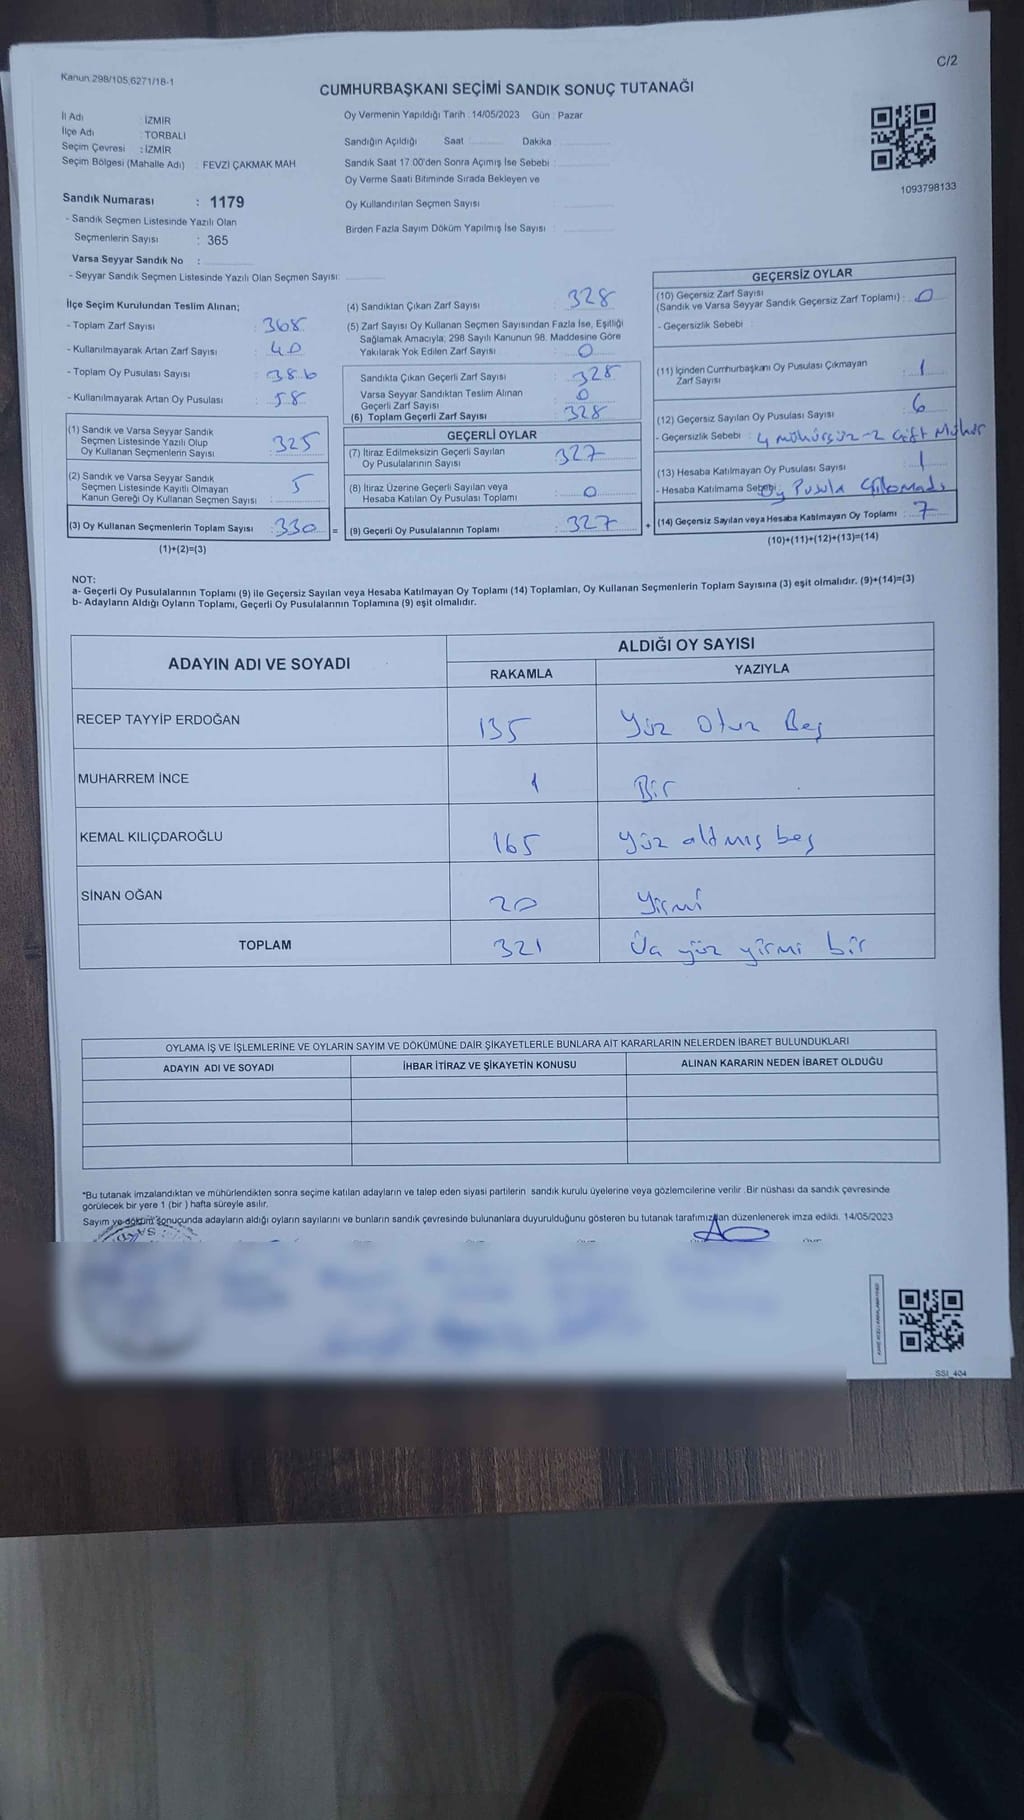 C/2
Kanun.298/105,6271/18-1
CUMHURBAŞKANI SEÇİMİ SANDIK SONUÇ TUTANAĞI
İl Adı : İZMİR
İlçe Adı : TORBALI
Seçim Çevresi : İZMİR
Seçim Bölgesi (Mahalle Adı) : FEVZİ ÇAKMAK MAH
Oy Vermenin Yapıldığı Tarih : 14/05/2023 Gün : Pazar
Sandığın Açıldığı Saat Dakika :
Sandık Saat 17 00'den Sonra Açımış İse Sebebi :
Oy Verme Saati Bitiminde Sırada Bekleyen ve
Oy Kullandırılan Seçmen Sayısı :
Birden Fazla Sayım Döküm Yapılmış İse Sayısı :
1093798133
Sandık Numarası : 1179
- Sandık Seçmen Listesinde Yazılı Olan
Seçmenlerin Sayısı : 365
Varsa Seyyar Sandık No :
- Seyyar Sandık Seçmen Listesinde Yazılı Olan Seçmen Sayısı:
İlçe Seçim Kurulundan Teslim Alınan;
- Toplam Zarf Sayısı : 368
- Kullanılmayarak Artan Zarf Sayısı : 40
- Toplam Oy Pusulası Sayısı : 386
- Kullanılmayarak Artan Oy Pusulası : 58
(1) Sandık ve Varsa Seyyar Sandık
Seçmen Listesinde Yazılı Olup
Oy Kullanan Seçmenlerin Sayısı : 325
(2) Sandık ve Varsa Seyyar Sandık
Seçmen Listesinde Kayıtlı Olmayan
Kanun Gereği Oy Kullanan Seçmen Sayısı : 5
(3) Oy Kullanan Seçmenlerin Toplam Sayısı : 330 =
(1)+(2)=(3)
(4) Sandıktan Çıkan Zarf Sayısı : 328
(5) Zarf Sayısı Oy Kullanan Seçmen Sayısından Fazla İse, Eşitliği
Sağlamak Amacıyla; 298 Sayılı Kanunun 98. Maddesine Göre
Yakılarak Yok Edilen Zarf Sayısı : 0
Sandıkta Çıkan Geçerli Zarf Sayısı : 328
Varsa Seyyar Sandıktan Teslim Alınan
Geçerli Zarf Sayısı : 0
(6) Toplam Geçerli Zarf Sayısı : 328
GEÇERLİ OYLAR
(7) İtiraz Edilmeksizin Geçerli Sayılan
Oy Pusulalarının Sayısı : 327
(8) İtiraz Üzerine Geçerli Sayılan veya
Hesaba Katılan Oy Pusulası Toplamı : 0
(9) Geçerli Oy Pusulalarının Toplamı : 327 +
GEÇERSİZ OYLAR
(10) Geçersiz Zarf Sayısı
(Sandık ve Varsa Seyyar Sandık Geçersiz Zarf Toplamı) : 0
- Geçersizlik Sebebi :
(11) İçinden Cumhurbaşkanı Oy Pusulası Çıkmayan
Zarf Sayısı : 1
(12) Geçersiz Sayılan Oy Pusulası Sayısı : 6
- Geçersizlik Sebebi : 4 mühürsüz - 2 Çift Mühür
(13) Hesaba Katılmayan Oy Pusulası Sayısı : 1
- Hesaba Katılmama Sebebi : Oy Pusula Çıkmadı
(14) Geçersiz Sayılan veya Hesaba Katılmayan Oy Toplamı : 7
(10)+(11)+(12)+(13)=(14)
NOT:
a- Geçerli Oy Pusulalarının Toplamı (9) ile Geçersiz Sayılan veya Hesaba Katılmayan Oy Toplamı (14) Toplamları, Oy Kullanan Seçmenlerin Toplam Sayısına (3) eşit olmalıdır. (9)+(14)=(3)
b- Adayların Aldığı Oyların Toplamı, Geçerli Oy Pusulalarının Toplamına (9) eşit olmalıdır.
ADAYIN ADI VE SOYADI ALDIĞI OY SAYISI
RAKAMLA YAZIYLA
RECEP TAYYİP ERDOĞAN 135 Yüz Otuz Beş
MUHARREM İNCE 1 Bir
KEMAL KILIÇDAROĞLU 165 Yüz altmış beş
SİNAN OĞAN 20 Yirmi
TOPLAM 321 Üç yüz yirmi bir
OYLAMA İŞ VE İŞLEMLERİNE VE OYLARIN SAYIM VE DÖKÜMÜNE DAİR ŞİKAYETLERLE BUNLARA AİT KARARLARIN NELERDEN İBARET BULUNDUKLARI
ADAYIN ADI VE SOYADI İHBAR İTİRAZ VE ŞİKAYETİN KONUSU ALINAN KARARIN NEDEN İBARET OLDUĞU
*Bu tutanak imzalandıktan ve mühürlendikten sonra seçime katılan adayların ve talep eden siyasi partilerin sandık kurulu üyelerine veya gözlemcilerine verilir .Bir nüshası da sandık çevresinde
görülecek bir yere 1 (bir ) hafta süreyle asılır.
Sayım ve döküm sonuçunda adayların aldığı oyların sayılarını ve bunların sandık çevresinde bulunanlara duyurulduğunu gösteren bu tutanak tarafımızdan düzenlenerek imza edildi. 14/05/2023
SSI_404